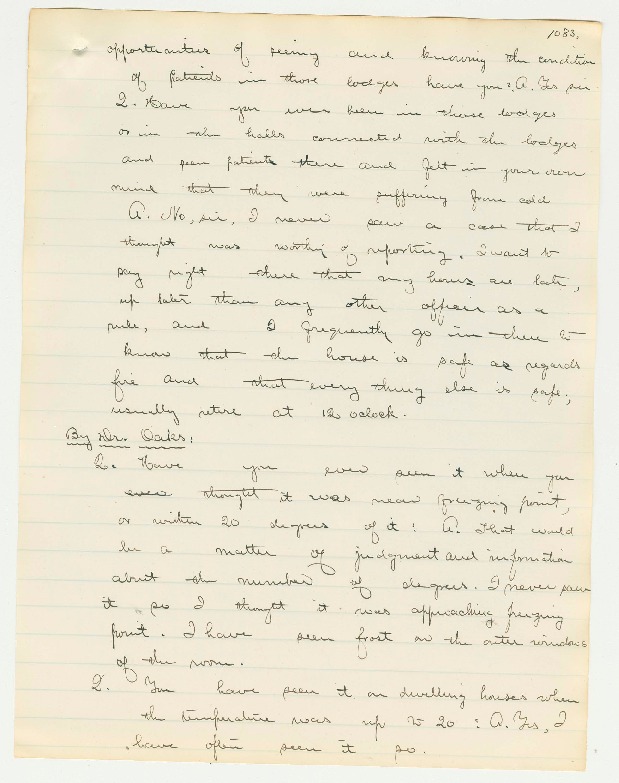 1083.
opportunities of seeing and knowing the condition
of patients in those lodges have you? A. Yes sir.
Q. Have you ever been in those lodges
or in the halls connected with the lodges
and seen patients there and felt in your own
mind that they were suffering from cold
A. No, sir, I never saw a case that I
thought was worthy of reporting. I want to
say right there that my hours are late,
up later than any other officer as a
rule, and I frequently go in there to
know that the house is safe as regards
fire and that every thing else is safe;
usually retire at 12 oclock.
By Dr. Oaks:
Q. Have you ever seen it when you
even thought it was near freezing point,
or within 20 degrees of it? A. That would
be a matter of judgment and information
about the number of degrees. I never saw
it so I thought it was approaching freezing
point. I have seen frost on the outer windows
of the room.
Q. You have seen it on dwelling houses when
the temperature was up to 20: A. Yes, I
have often seen it so.